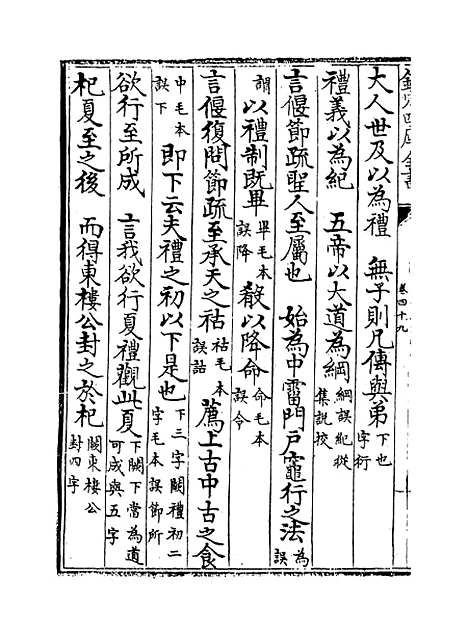 欽定四庫全書
卷四十九
大人世及以為禮　無子則凡傳與弟下也字衍
禮義以為紀　五帝以大道為綱綱誤紀從集説挍
言偃節疏聖人至屬也　始為中霤門戸竈行之法為誤
謂以禮制既畢畢毛本誤降殽以降命命毛本誤令
言偃復問節疏至承天之祜祜毛本誤詁薦上古中古之食
中毛本誤下即下云夫禮之初以下是也下三字闕禮初二字毛本誤節所
欲行至所成　言我欲行夏禮觀此夏下闕下當為道可成與五字
杞夏至之後　而得東樓公封之於杞闕東樓公封四字